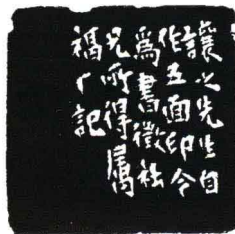 讓之先生自
作五面印今
為書徵祛
兄所得屬
福厂記